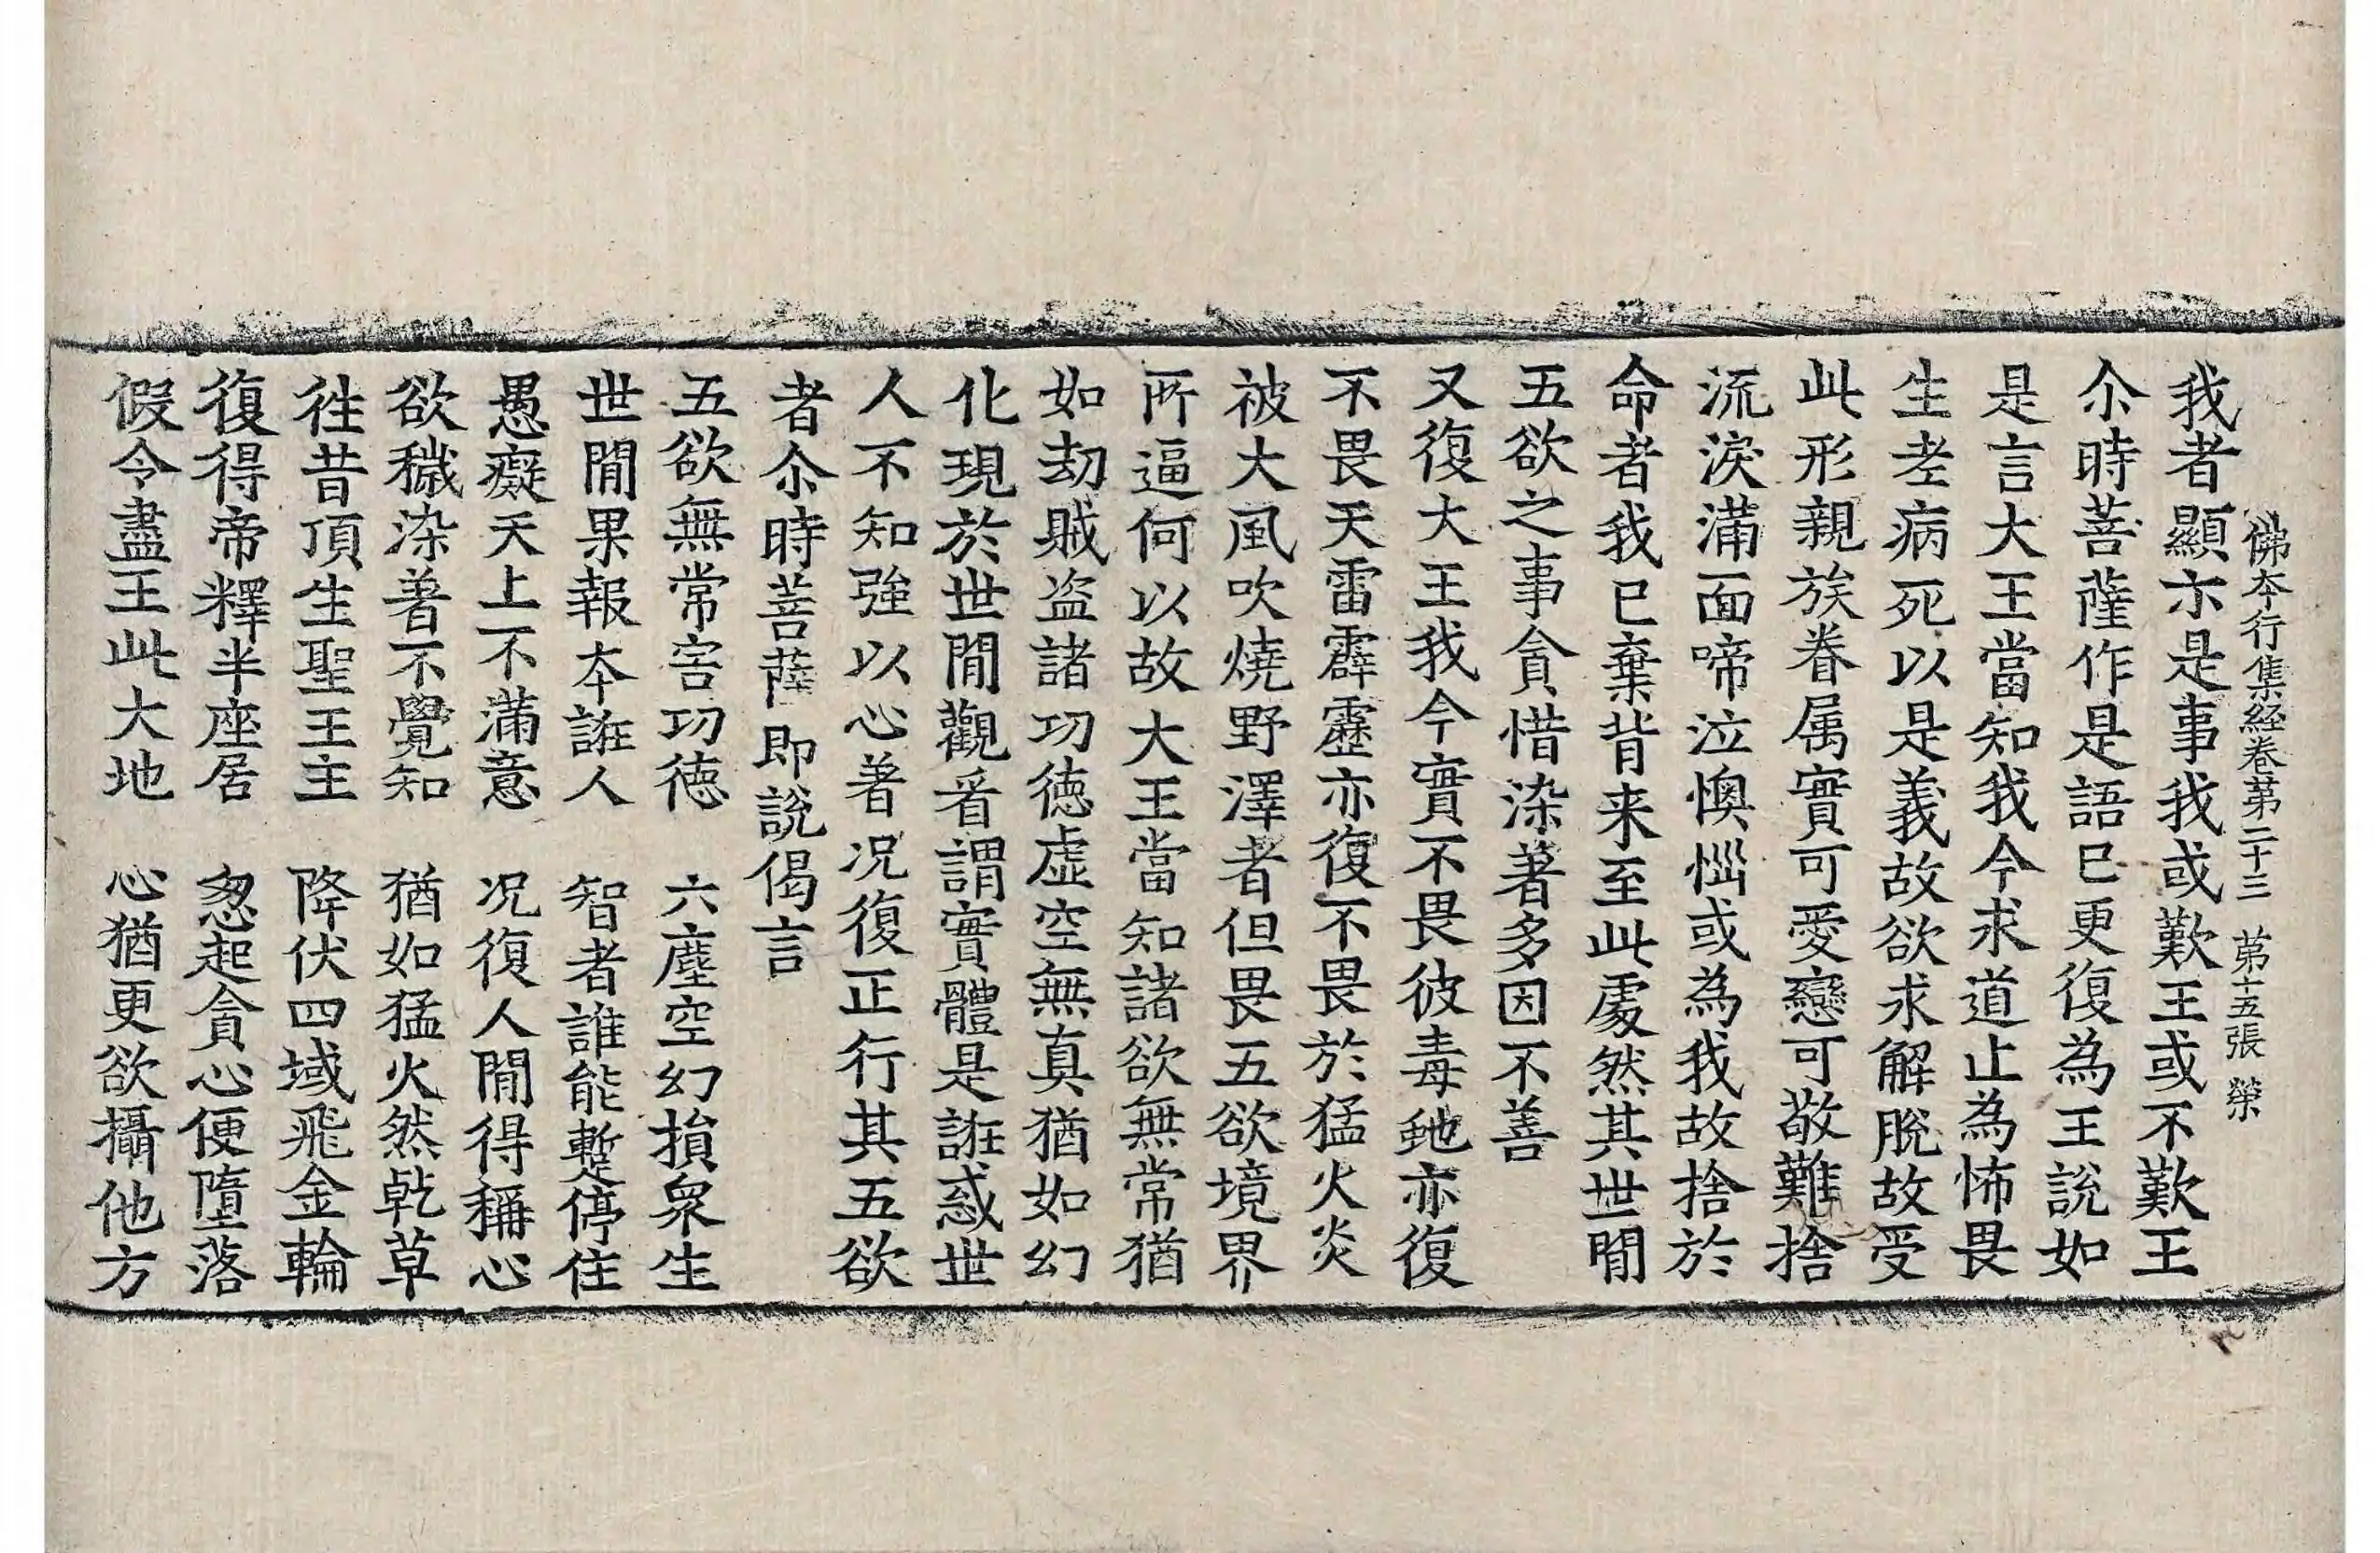 佛本行集経卷第二十三　第十五張　榮
我者顯示是事我或歎王或不歎王
尒時菩薩作是語已更復為王說如
是言大王當知我今求道止為怖畏
生老病死以是義故欲求解脫故受
此形親族眷属實可愛戀可敬難捨
流淚滿面啼泣懊惱或為我故捨於
命者我已棄背来至此處然其世間
五欲之事貪惜染著多因不善
又復大王我今實不畏彼毒虵亦復
不畏天雷霹靂亦復不畏於猛火炎
被大風吹燒野澤者但畏五欲境界
所逼何以故大王當知諸欲無常猶
如劫賊盗諸功徳虚空無真猶如幻
化現於世間觀看謂實體是誑惑世
人不知強以心著况復正行其五欲
者尒時菩薩即說偈言
五欲無常害功徳　六塵空幻損眾生
世間果報本誑人　智者誰能蹔停住
愚癡天上不滿意　况復人間得稱心
欲穢染著不覺知　猶如猛火然乾草
往昔頂生聖王主　降伏四域飛金輪
復得帝釋半座居　忽起貪心便墮落
假令盡王此大地　心猶更欲攝他方